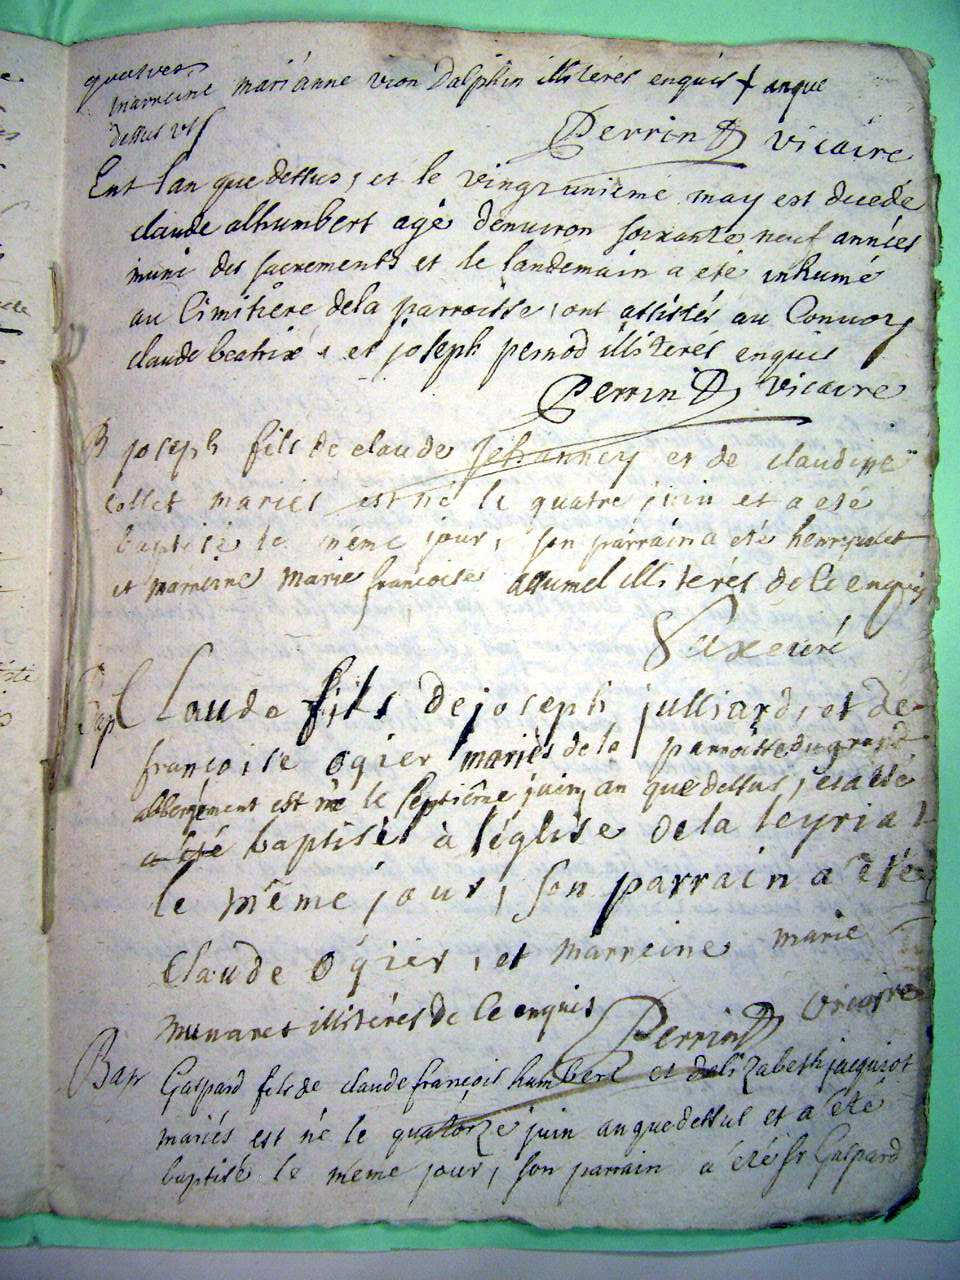 marreine marianne vion Dalphin illiterés enquis + anque
dessus
Perrin vicaire
Ent lan que dessus, et le vingt unieme may est decedé
claude alhumbert agé denuiron soixante neuf années
muni des sacrements et le landemain a eté inhumé
au Cimitiere dela parroisse, ont assistés au Conuoy
claude beatrix, et joseph pernod illiterés enquis
Perrin vicaire
B joseph fils de claude Jehanney et de claudine
collet mariés est né le quatre juin et a eté
baptisé le même jour, son parrain a eté
et marreine marie francoise illiterés de ce enquis
curé
Bap Claude fils de joseph julliard, et de
francoise ogier mariés de la parroisse du grand
abbergement est né le septième juin, an que dessus, et a eté
a été baptisé à l'église de la leyriat
le même jour, son parrain a été
Claude Ogier, et marreine marie
munaret illiterés de ce enquis
Perrin vicaire
Bap Gaspard fils de claude françois humbert et delizabeth jacquiot
mariés est né le quatorze juin anque dessus et a été
baptisé le meme jour, son parrain a été sr Gaspard